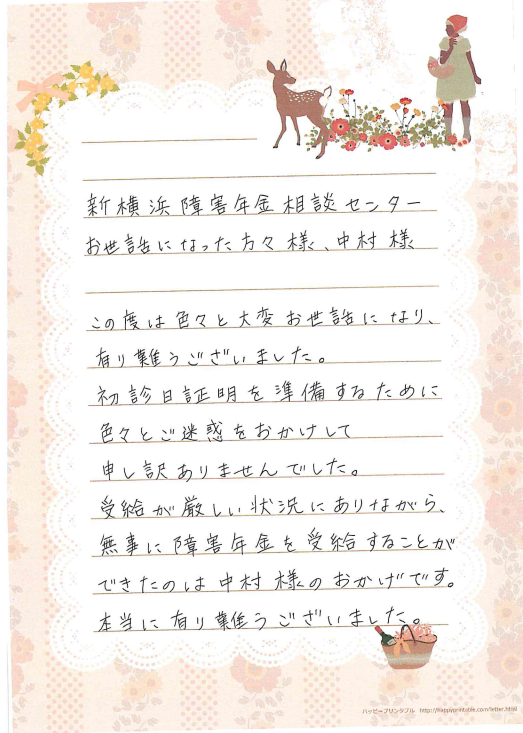 新横浜障害年金相談センター
お世話になった方々様、中村様
この度は色々と大変お世話になり、
有り難うございました。
初診日証明を準備するために
色々とご迷惑をおかけして
申し訳ありませんでした。
受給が厳しい状況にありながら、
無事に障害年金を受給することが
できたのは中村様のおかげです。
本当に有り難うございました。
ハッピープリンタブル http://happyprintable.com/letter.html